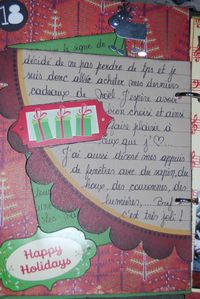 18
le signe de
décidé de ne pas perdre de tps et je
suis donc allée acheter mes derniers
cadeaux de Noël. J'espère avoir
bien choisi et ainsi
faire plaisir à
ceux que j'♡
J'ai aussi décoré mes appuis
de fenêtres avec du sapin, du
houx, des couronnes, des
lumières, .... Bref
c'est très joli !
Happy
Holidays